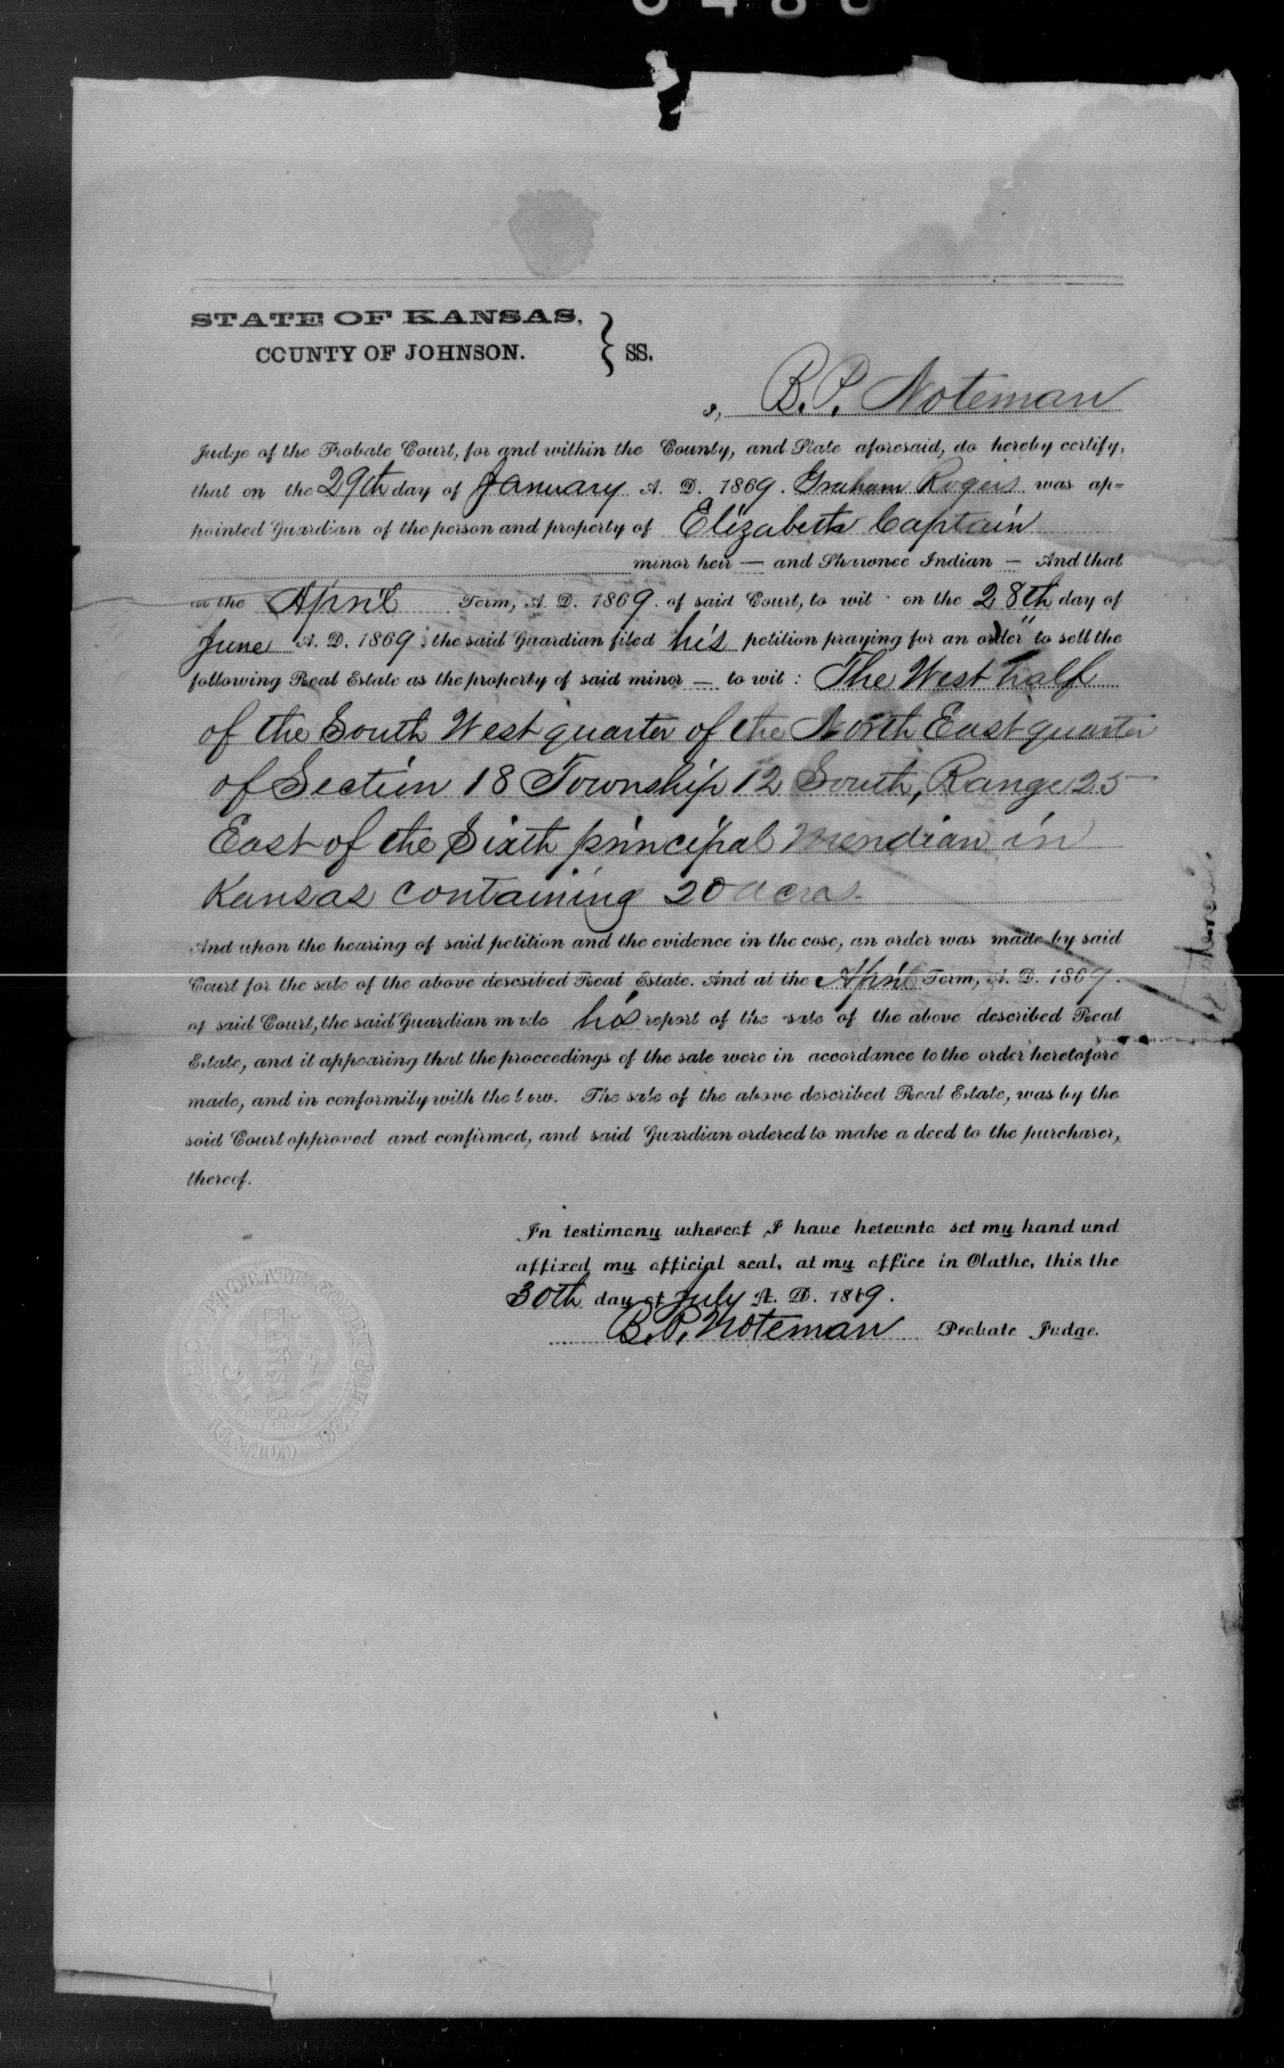 STATE OF KANSAS,
COUNTY OF JOHNSON. } SS.
I, B. P. Noteman
Judge of the Probate Court, for and within the County, and State aforesaid, do hereby certify,
that on the 29th day of January A. D. 1869. Graham Rogers was ap=
pointed Guardian of the person and property of Elizabeth Captain
minor heir — and Shawnee Indian — And that
at the April Term, A. D. 1869. of said Court, to wit: on the 28th day of
June A. D. 1869; the said Guardian filed his petition praying for an order to sell the
following Real Estate as the property of said minor — to wit: The West half
of the South West quarter of the North East quarter
of Section 18 Township 12 South, Range 25
East of the Sixth principal Meridian in
Kansas containing 20 acres.
And upon the hearing of said petition and the evidence in the case, an order was made by said
Court for the sale of the above descsibed Real Estate. And at the April Term, A. D. 1869.
of said Court, the said Guardian made his report of the sale of the above described Real
Estate, and it appearing that the proceedings of the sale were in accordance to the order heretofore
made, and in conformity with the law. The sale of the above described Real Estate, was by the
said Court approved and confirmed, and said Guardian ordered to make a deed to the purchaser,
thereof.
In testimony whereof I have hereunto set my hand and
affixed my official seal, at my office in Olathe, this the
30th day of July A. D. 1869.
B. P. Noteman Probate Judge.
PROBATE COURT JOHNSON COUNTY
KANSAS